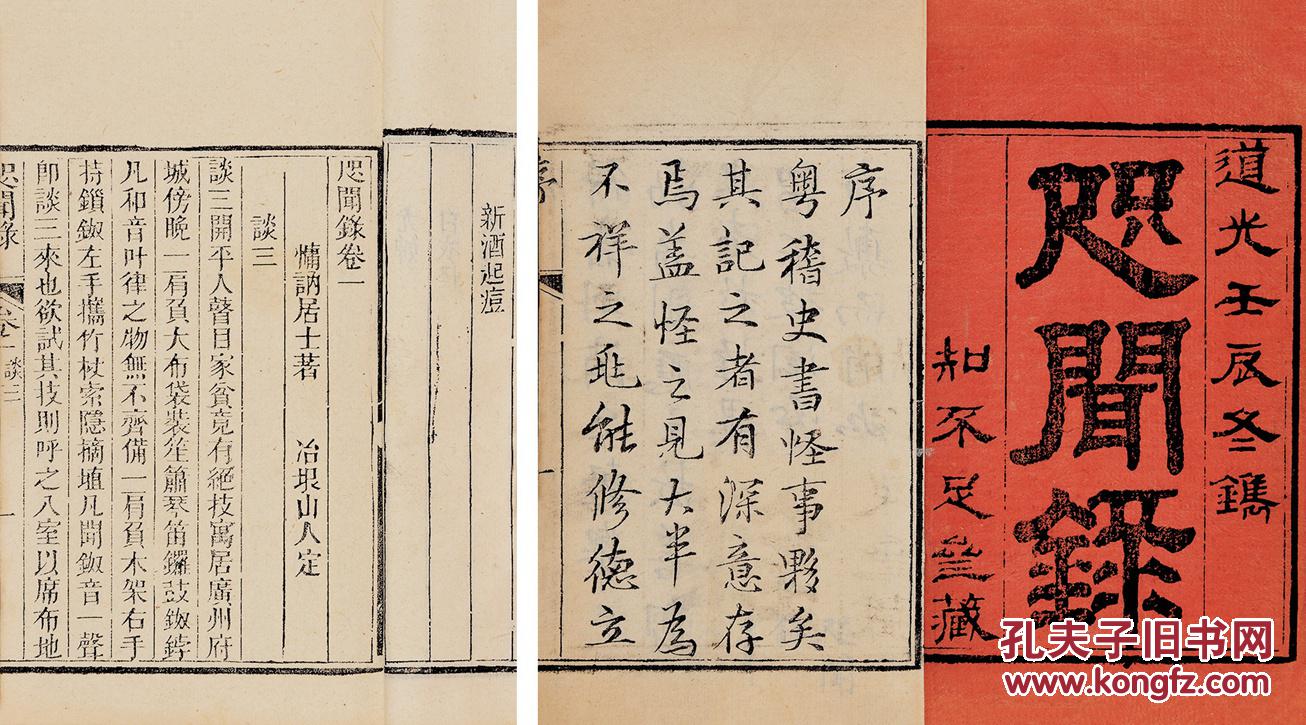 道光壬辰冬鐫
咫聞錄
知不足齋藏
序
粤稽史書怪事夥矣
其記之者有深意存
焉盖怪之見大半為
不祥之兆能修德立
序
新酒起痘
咫聞錄卷一
慵訥居士著 冶垠山人定
談三
談三開平人瞽目家貧竟有絕技寓居廣州府
城傍晚一肩負大布袋裝笙簫琴笛鑼鼓鈸鋍
凡和音叶律之物無不齊備一肩負木架右手
持鎖鈸左手攜竹杖索隱摘埴凡聞鈸音一聲
即談三來也欲試其技則呼之入室以席布地
咫聞錄 卷一 談三 一
孔夫子旧书网
www.kongfz.com